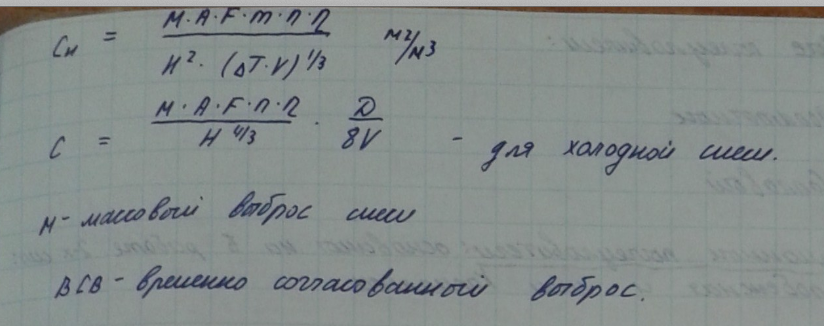 Cн = M·A·F·m·n·η / H²·(ΔT·V)^1/3 мг/м3
C = M·A·F·n·η / H^4/3 · D / 8V - для холодной смеси.
M - массовый выброс смеси
ВСВ - временно согласованный выброс.